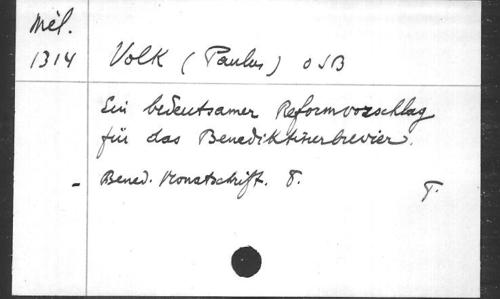 Mél.
1314 Volk (Paulus) OSB
Ein bedeutsamer Reformvorschlag
für das Benediktinerbrevier.
- Bened. Monatschrift. 8.
T.